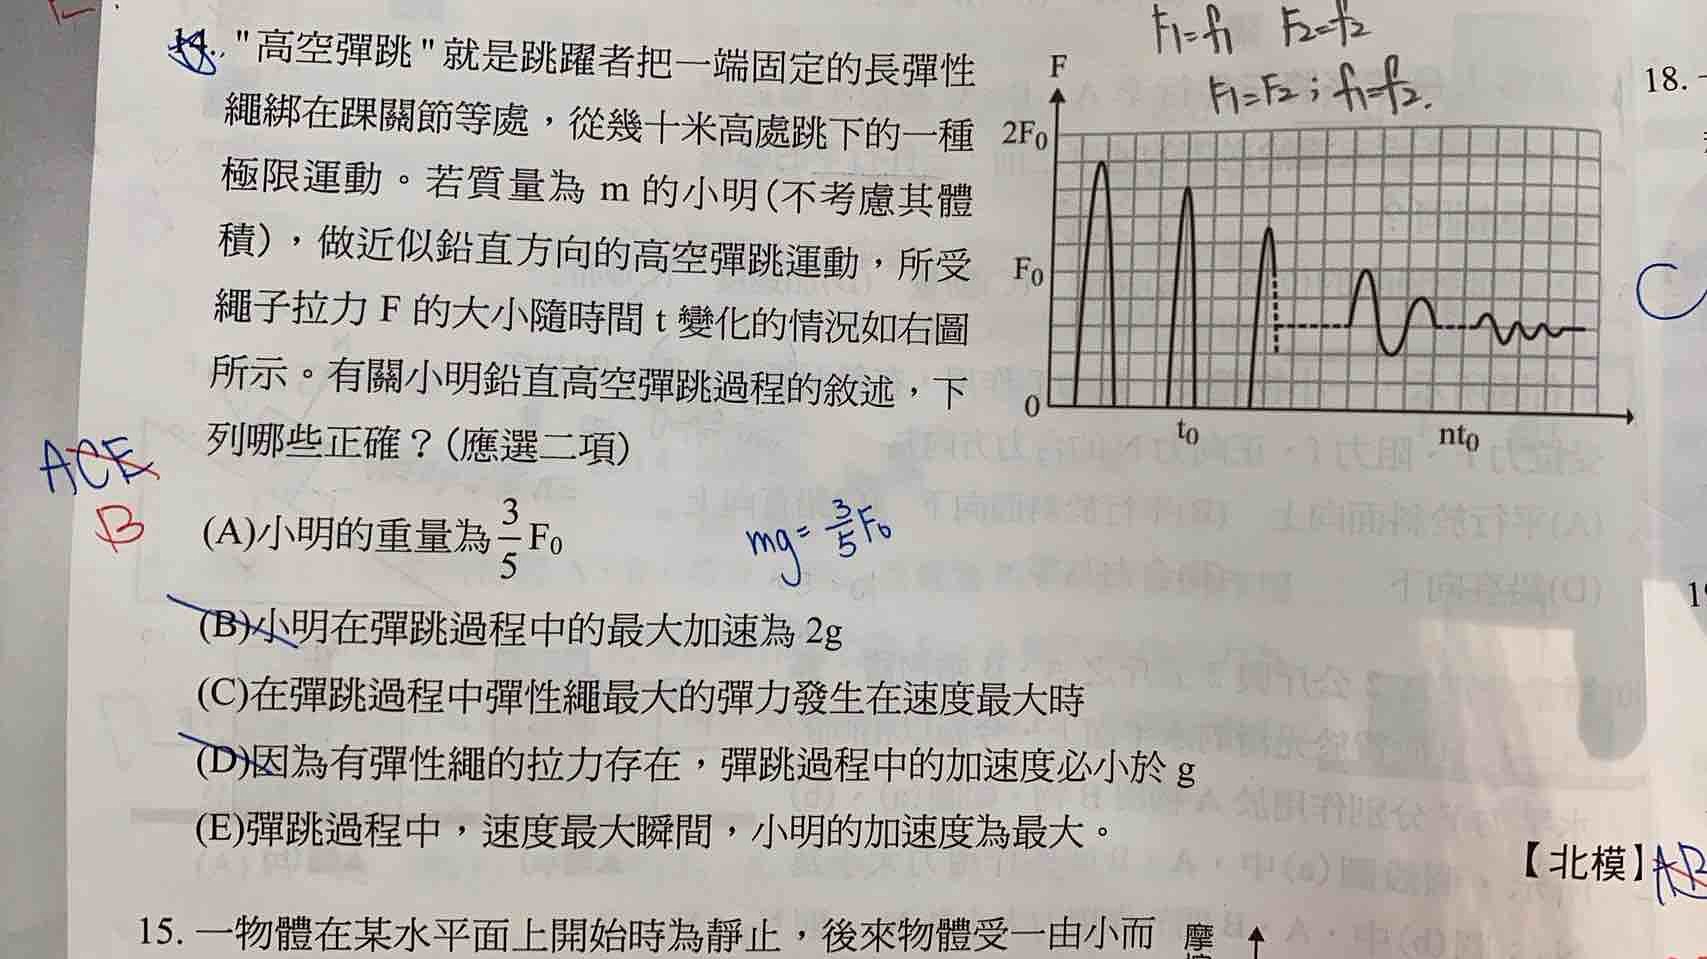 F1=f1 F2=f2
F1=F2；f1=f2.
14. "高空彈跳"就是跳躍者把一端固定的長彈性
繩綁在踝關節等處，從幾十米高處跳下的一種
極限運動。若質量為 m 的小明(不考慮其體
積)，做近似鉛直方向的高空彈跳運動，所受
繩子拉力 F 的大小隨時間 t 變化的情況如右圖
所示。有關小明鉛直高空彈跳過程的敘述，下
列哪些正確？(應選二項)
F
2F0
F0
0
t0
nt0
ACE
B
(A)小明的重量為 3/5 F0
mg= 3/5 F0
(B)小明在彈跳過程中的最大加速為 2g
(C)在彈跳過程中彈性繩最大的彈力發生在速度最大時
(D)因為有彈性繩的拉力存在，彈跳過程中的加速度必小於 g
(E)彈跳過程中，速度最大瞬間，小明的加速度為最大。
【北模】
AB
15. 一物體在某水平面上開始時為靜止，後來物體受一由小而
摩
18.
C